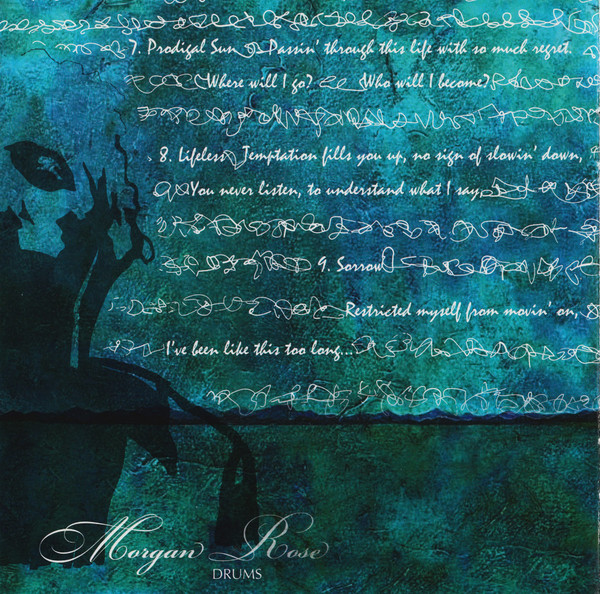 7. Prodigal Sun Passin' through this life with so much regret.
Where will I go? Who will I become?
8. Lifeless Temptation fills you up, no sign of slowin' down,
You never listen, to understand what I say.
9. Sorrow
Restricted myself from movin' on,
I've been like this too long...
Morgan Rose
DRUMS